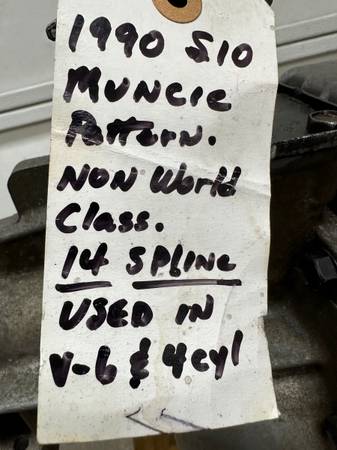 1990 S10
MUNCIE
Pattern.
NON World
Class.
14 SPLINE
USED IN
V-6 & 4cyl